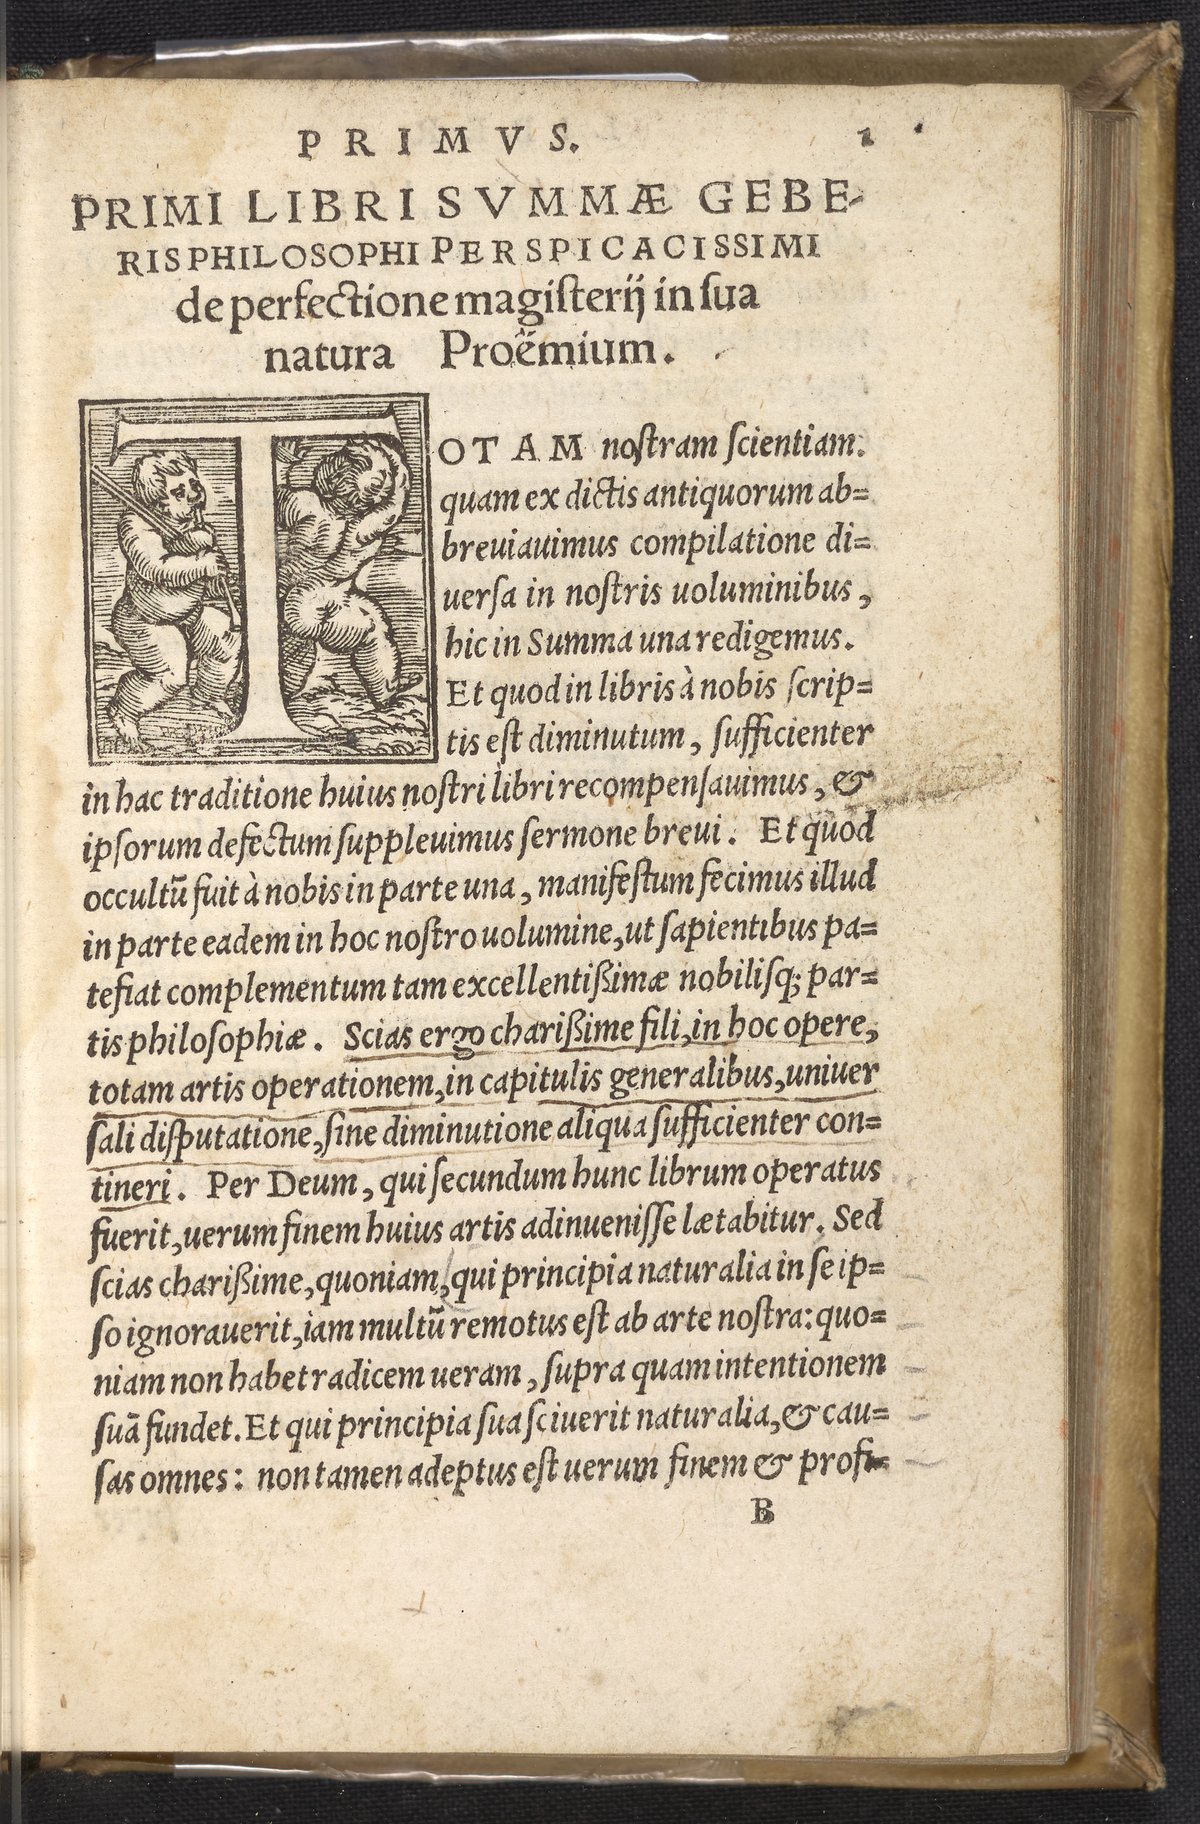 PRIMVS. 1
PRIMI LIBRI SVMMÆ GEBE-
RIS PHILOSOPHI PERSPICACISSIMI
de perfectione magiſterij in ſua
natura Proëmium.
TOTAM noſtram ſcientiam.
quam ex dictis antiquorum ab=
breuiauimus compilatione di=
uerſa in noſtris uoluminibus,
hic in Summa una redigemus.
Et quod in libris à nobis ſcrip=
tis eſt diminutum, ſufficienter
in hac traditione huius noſtri libri recompenſauimus, &
ipſorum defectum ſuppleuimus ſermone breui. Et quod
occultũ fuit à nobis in parte una, manifeſtum fecimus illud
in parte eadem in hoc noſtro uolumine, ut ſapientibus pa=
tefiat complementum tam excellentißimæ nobiliſq; par=
tis philoſophiæ. Scias ergo charißime fili, in hoc opere,
totam artis operationem, in capitulis generalibus, uniuer
ſali diſputatione, ſine diminutione aliqua ſufficienter con=
tineri. Per Deum, qui ſecundum hunc librum operatus
fuerit, uerum finem huius artis adinueniſſe lætabitur. Sed
ſcias charißime, quoniam, qui principia naturalia in ſe ip=
ſo ignorauerit, iam multũ remotus eſt ab arte noſtra: quo=
niam non habet radicem ueram, ſupra quam intentionem
ſuã fundet. Et qui principia ſua ſciuerit naturalia, & cau=
ſas omnes: non tamen adeptus eſt uerum finem & profi=
B